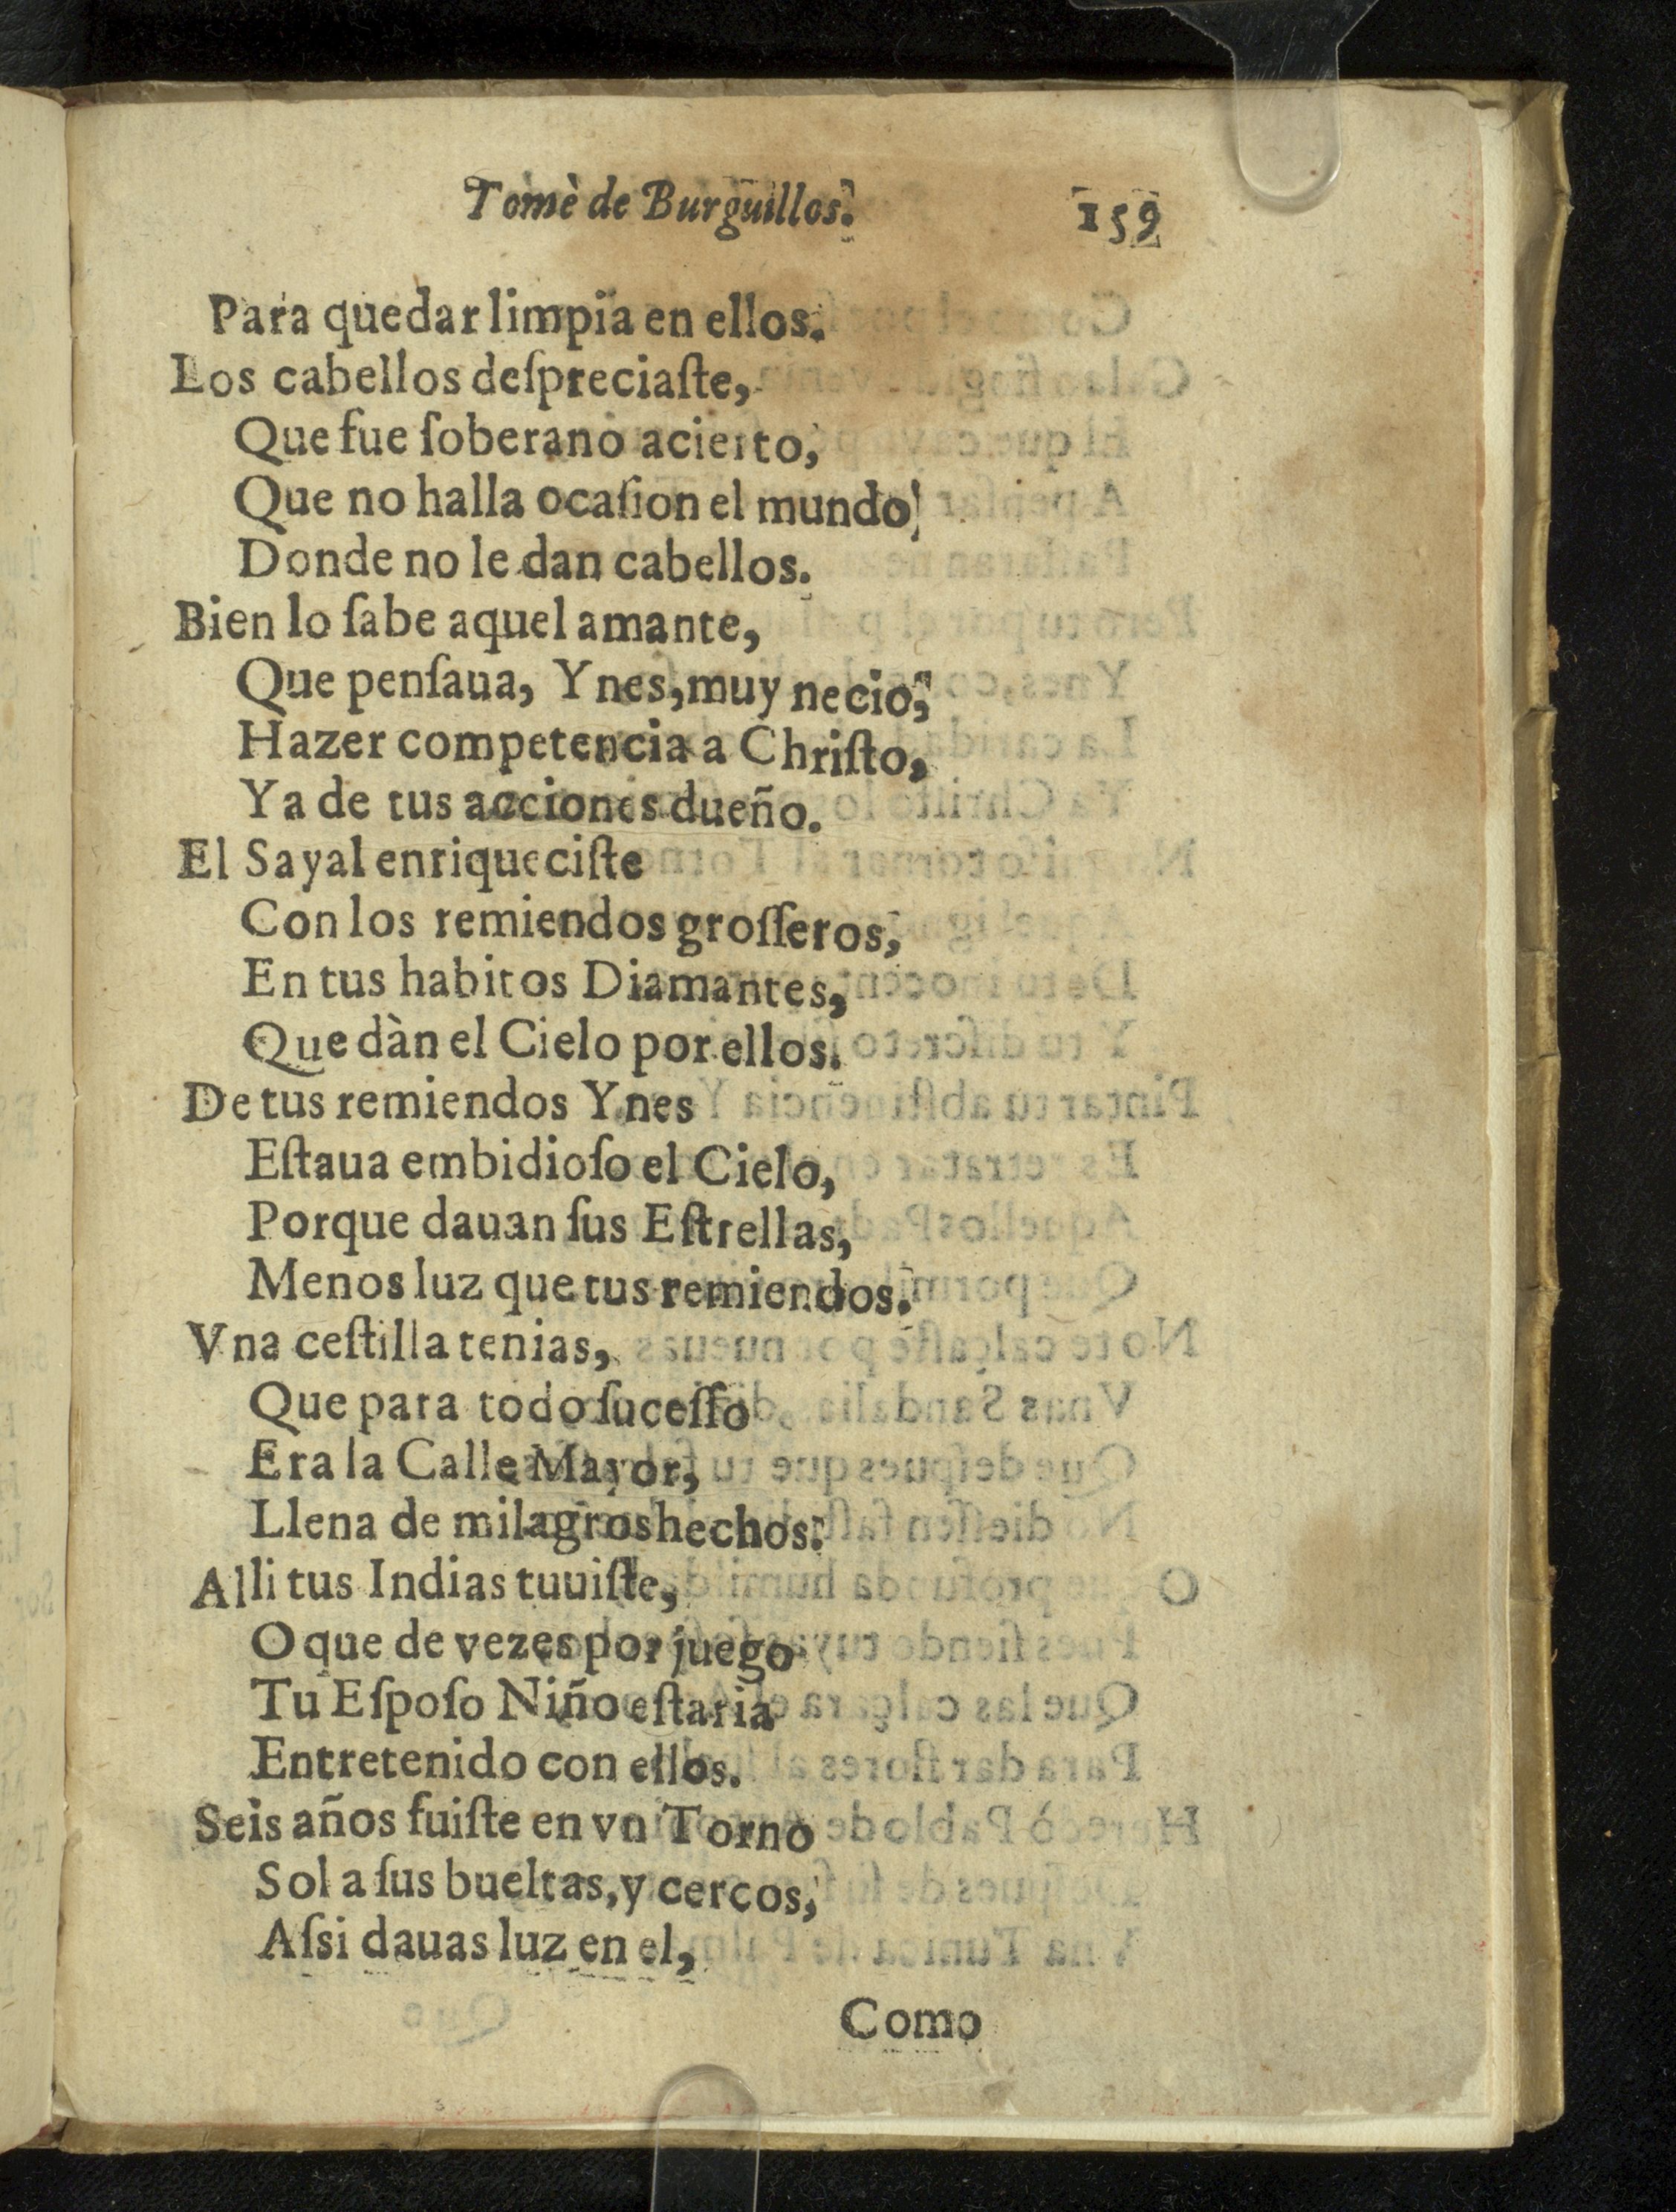 Tomè de Burguillos. 159
Para quedar limpia en ellos.
Los cabellos deſpreciaſte,
Que fue ſoberano acierto,
Que no halla ocaſion el mundo,
Donde no le dan cabellos.
Bien lo ſabe aquel amante,
Que penſaua, Ynes, muy necio,
Hazer competencia a Chriſto,
Ya de tus acciones dueño.
El Sayal enriqueciſte
Con los remiendos groſſeros,
En tus habitos Diamantes,
Que dàn el Cielo por ellos.
De tus remiendos Ynes
Eſtaua embidioſo el Cielo,
Porque dauan ſus Eſtrellas,
Menos luz que tus remiendos.
Vna ceſtilla tenias,
Que para todo ſuceſſo
Era la Calle Mayor,
Llena de milagros hechos.
Alli tus Indias tuuiſte,
O que de vezes por juego
Tu Eſpoſo Niño eſtaria
Entretenido con ellos.
Seis años fuiſte en vn Torno
Sol a ſus bueltas, y cercos,
Aſsi dauas luz en el,
Como